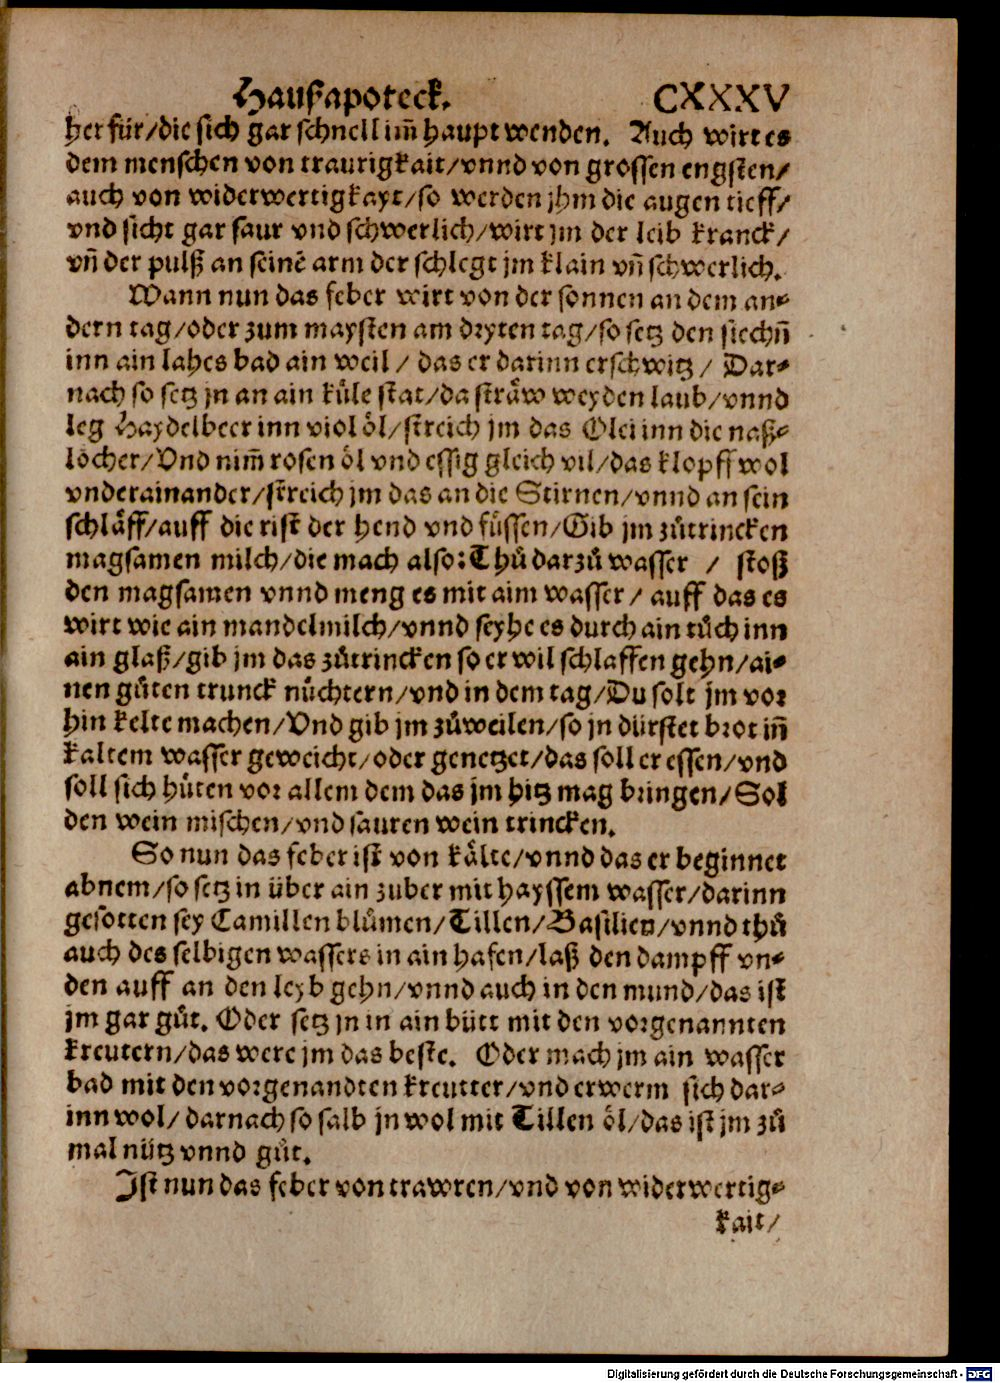 Haußapoteck. CXXXV
her für/die sich gar schnell im̃ haupt wenden. Auch wirt es
dem menschen von traurigkait/vnnd von grossen engsten/
auch von widerwertigkayt/so werden jhm die augen tieff/
vnd sicht gar saur vnd schwerlich/wirt jm der leib kranck/
vñ der pulß an seinẽ arm der schlegt jm klain vñ schwerlich.
Wann nun das feber wirt von der sonnen an dem an⸗
dern tag/oder zum maysten am dryten tag/so setz den siechñ
inn ain lahes bad ain weil / das er darinn erschwitz / Dar⸗
nach so setz jn an ain küle stat/da sträw weyden laub/vnnd
leg Haydelbeer inn viol öl/streich jm das Olei inn die naß⸗
löcher/Vnd nim̃ rosen öl vnd essig gleich vil/das klopff wol
vnderainander/streich jm das an die Stirnen/vnnd an sein
schläff/auff die rist der hend vnd füssen/Gib jm zůtrincken
magsamen milch/die mach also: Thů darzů wasser / stoß
den magsamen vnnd meng es mit aim wasser/ auff das es
wirt wie ain mandelmilch/vnnd seyhe es durch ain tůch inn
ain glaß/gib jm das zůtrincken so er wil schlaffen gehn/ai⸗
nen gůten trunck nüchtern/vnd in dem tag/Du solt jm vor
hin kelte machen/Vnd gib jm zůweilen/so jn dürstet brot iñ
kaltem wasser geweicht/oder genetzet/das soll er essen/vnd
soll sich hüten vor allem dem das jm hitz mag bringen/Sol
den wein mischen/vnd sauren wein trincken.
So nun das feber ist von kälte/vnnd das er beginnet
abnem/so setz in über ain zuber mit hayssem wasser/darinn
gesotten sey Camillen blůmen/Tillen/Basilien/vnnd thů
auch des selbigen wassers in ain hafen/laß den dampff vn⸗
den auff an den leyb gehn/vnnd auch in den mund/das ist
jm gar gůt. Oder setz jn in ain bütt mit den vorgenannten
kreutern/das were jm das beste. Oder mach jm ain wasser
bad mit den vorgenandten kreutter/vnd erwerm sich dar⸗
inn wol/ darnach so salb jn wol mit Tillen öl/das ist jm zů
mal nütz vnnd gůt.
Ist nun das feber von trawren/vnd von widerwertig⸗
kait/
Digitalisierung gefördert durch die Deutsche Forschungsgemeinschaft - DFG